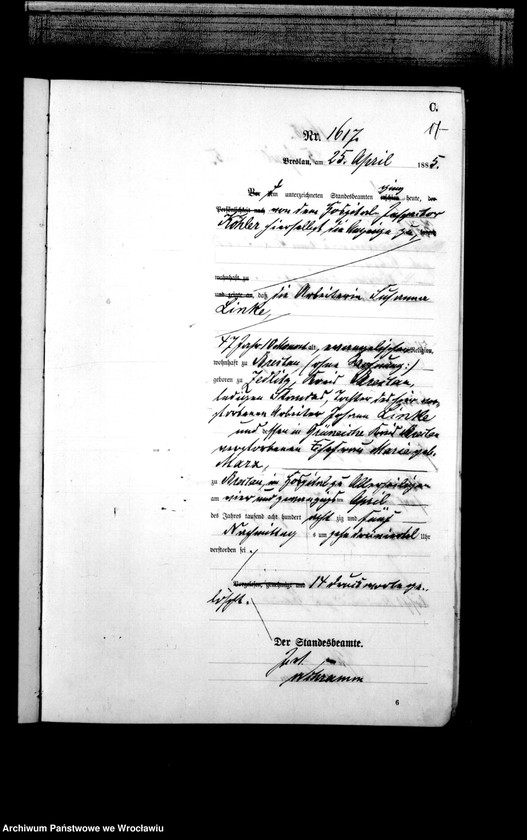 C.
Nr. 1617.
Breslau, am 25. April 1885.
Vor dem unterzeichneten Standesbeamten erschien heute, der
ging
Persönlichkeit nach von dem Hospital-Inspektor
Köhler hierselbst die Anzeige
wohnhaft zu
und zeigte an, daß die Arbeiterin Susanna
Linke,
47 Jahr alt, evangelischer Religion,
wohnhaft zu Breslau (ohne Wohnung)
geboren zu Jedlitz, Kreis Breslau,
ledigen Standes, Tochter des hier ver-
storbenen Arbeiter Johann Linke
und dessen in Kreis Breslau
verstorbenen Ehefrau Maria geb.
Marx,
zu Breslau, im Hospital zu Allerheiligen
am vier und zwanzigsten April
des Jahres tausend acht hundert acht zig und fünf
Nachmittags um Uhr
verstorben sei.
Vorgelesen, genehmigt und 14 Druckworte ge-
löscht.
Der Standesbeamte.
Schramm
6
Archiwum Państwowe we Wrocławiu